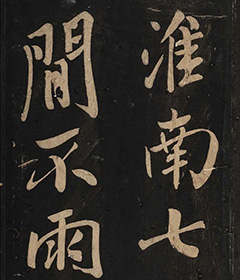 淮南七
間不雨